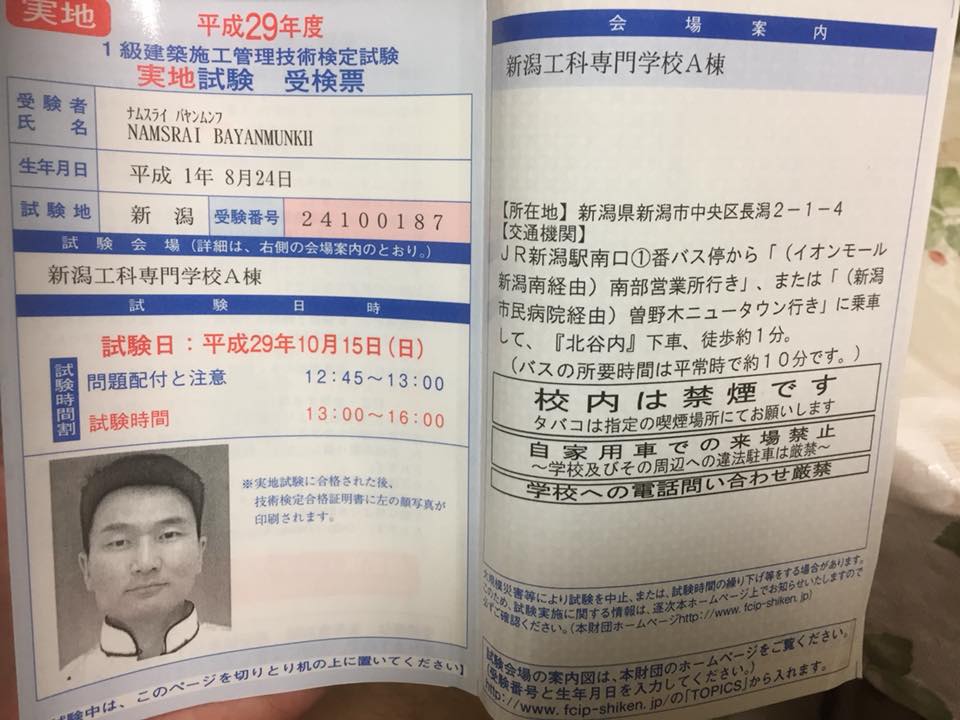 実地
平成29年度
1級建築施工管理技術検定試験
実地試験 受検票
受験者氏名
ナムスライ バヤンムンフ
NAMSRAI BAYANMUNKH
生年月日
平成 1年 8月24日
試験地
新 潟
受験番号
24100187
試 験 会 場(詳細は、右側の会場案内のとおり。)
新潟工科専門学校A棟
試 験 日 時
試験日:平成29年10月15日(日)
試験時間割
問題配付と注意 12:45~13:00
試験時間 13:00~16:00
※実地試験に合格された後、
技術検定合格証明書に左の顔写真が
印刷されます。
試験中は、このページを切りとり机の上に置いてください】
会 場 案 内
新潟工科専門学校A棟
【所在地】新潟県新潟市中央区長潟2-1-4
【交通機関】
JR新潟駅南口①番バス停から「(イオンモール
新潟南経由)南部営業所行き」、または「(新潟
市民病院経由)曽野木ニュータウン行き」に乗車
して、『北谷内』下車、徒歩約1分。
(バスの所要時間は平常時で約10分です。)
校内は禁煙です
タバコは指定の喫煙場所にてお願いします
自家用車での来場禁止
~学校及びその周辺への違法駐車は厳禁~
学校への電話問い合わせ厳禁
大規模災害等により試験を中止、または、試験時間の繰り下げ等をする場合があります。
このため、試験実施に関する情報は、逐次本ホームページ上でお知らせいたしますので
必ずご確認ください。(本財団ホームページhttp://www.fcip-shiken.jp)
試験会場の案内図は、本財団のホームページをご覧ください。
(受験番号と生年月日を入力してください。)
http://www.fcip-shiken.jp/の「TOPICS」から入れます。